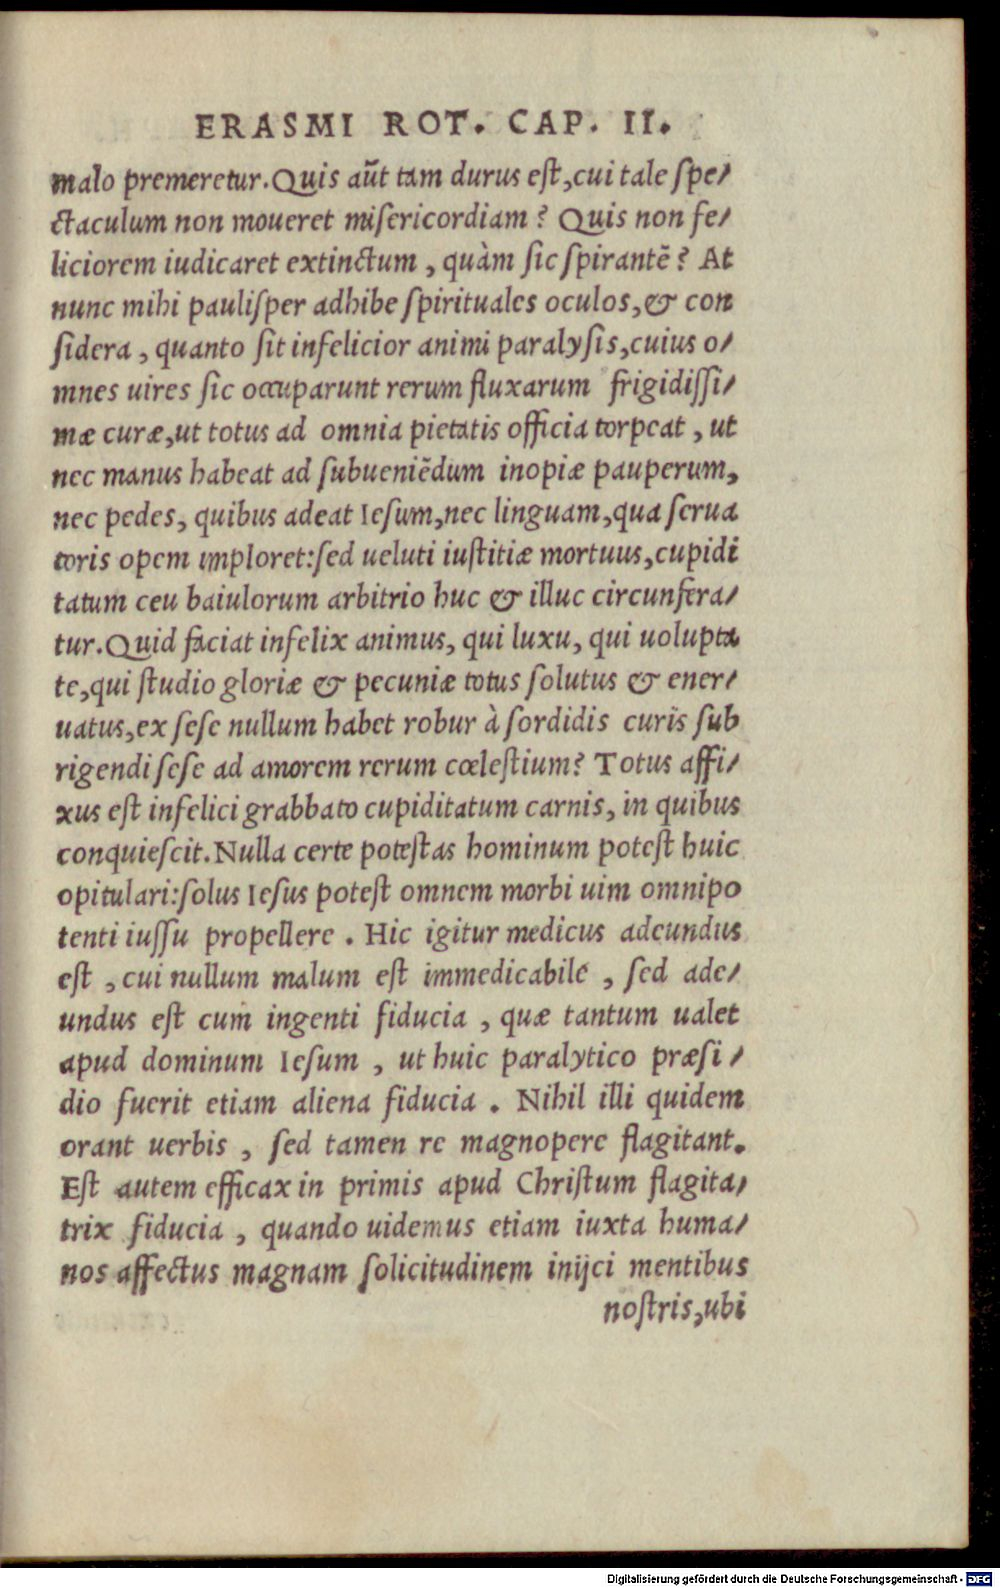 ERASMI ROT. CAP. II.
malo premeretur. Quis aũt tam durus eſt, cui tale ſpe/
ctaculum non moueret miſericordiam? Quis non fe/
liciorem iudicaret extinctum, quàm ſic ſpirantẽ? At
nunc mihi pauliſper adhibe ſpirituales oculos, & con
ſidera, quanto ſit infelicior animi paralyſis, cuius o/
mnes uires ſic occuparunt rerum fluxarum frigidiſſi/
mæ curæ, ut totus ad omnia pietatis officia torpeat, ut
nec manus habeat ad ſubueniẽdum inopiæ pauperum,
nec pedes, quibus adeat Ieſum, nec linguam, qua ſerua
toris opem imploret: ſed ueluti iuſtitiæ mortuus, cupidi
tatum ceu baiulorum arbitrio huc & illuc circunfera/
tur. Quid faciat infelix animus, qui luxu, qui uolupta
te, qui ſtudio gloriæ & pecuniæ totus ſolutus & ener/
uatus, ex ſeſe nullum habet robur à ſordidis curis ſub
rigendi ſeſe ad amorem rerum cœleſtium? Totus affi/
xus eſt infelici grabbato cupiditatum carnis, in quibus
conquieſcit. Nulla certe poteſtas hominum poteſt huic
opitulari: ſolus Ieſus poteſt omnem morbi uim omnipo
tenti iuſſu propellere. Hic igitur medicus adeundus
eſt, cui nullum malum eſt immedicabile, ſed ade/
undus eſt cum ingenti fiducia, quæ tantum ualet
apud dominum Ieſum, ut huic paralytico præſi/
dio fuerit etiam aliena fiducia. Nihil illi quidem
orant uerbis, ſed tamen re magnopere flagitant.
Eſt autem efficax in primis apud Chriſtum flagita/
trix fiducia, quando uidemus etiam iuxta huma/
nos affectus magnam ſolicitudinem inijci mentibus
noſtris, ubi
Digitalisierung gefördert durch die Deutsche Forschungsgemeinschaft - DFG